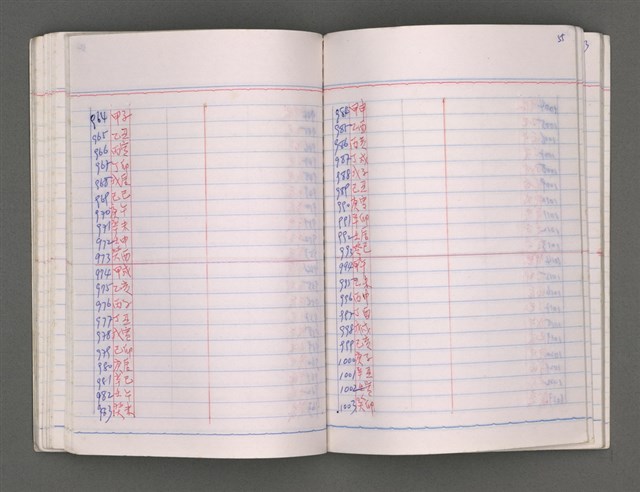 964 甲子
965 乙丑
966 丙寅
967 丁卯
968 戊辰
969 己巳
970 庚午
971 辛未
972 壬申
973 癸酉
974 甲戌
975 乙亥
976 丙子
977 丁丑
978 戊寅
979 己卯
980 庚辰
981 辛巳
982 壬午
983 癸未
35
984 甲申
985 乙酉
986 丙戌
987 丁亥
988 戊子
989 己丑
990 庚寅
991 辛卯
992 壬辰
993 癸巳
994 甲午
995 乙未
996 丙申
997 丁酉
998 戊戌
999 己亥
1000 庚子
1001 辛丑
1002 壬寅
1003 癸卯